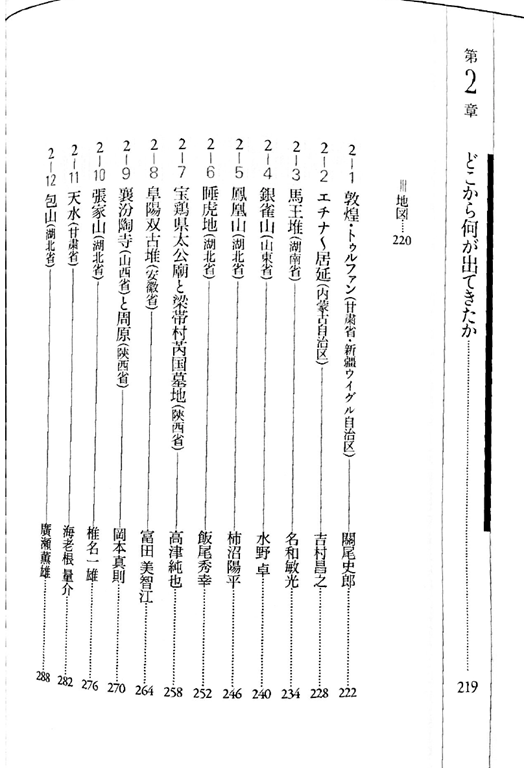 第2章 どこから何が出てきたか……219
≡地図……220
2-1 敦煌・トゥルファン(甘粛省・新疆ウイグル自治区)……關尾史郎……222
2-2 エチナ〜居延(内蒙古自治区)……吉村昌之……228
2-3 馬王堆(湖南省)……名和敏光……234
2-4 銀雀山(山東省)……水野 卓……240
2-5 鳳凰山(湖北省)……柿沼陽平……246
2-6 睡虎地(湖北省)……飯尾秀幸……252
2-7 宝鶏県太公廟と梁帯村芮国墓地(陝西省)……高津純也……258
2-8 阜陽双古堆(安徽省)……富田 美智江……264
2-9 襄汾陶寺(山西省)と周原(陝西省)……岡本真則……270
2-10 張家山(湖北省)……椎名一雄……276
2-11 天水(甘粛省)……海老根 量介……282
2-12 包山(湖北省)……廣瀬薫雄……288